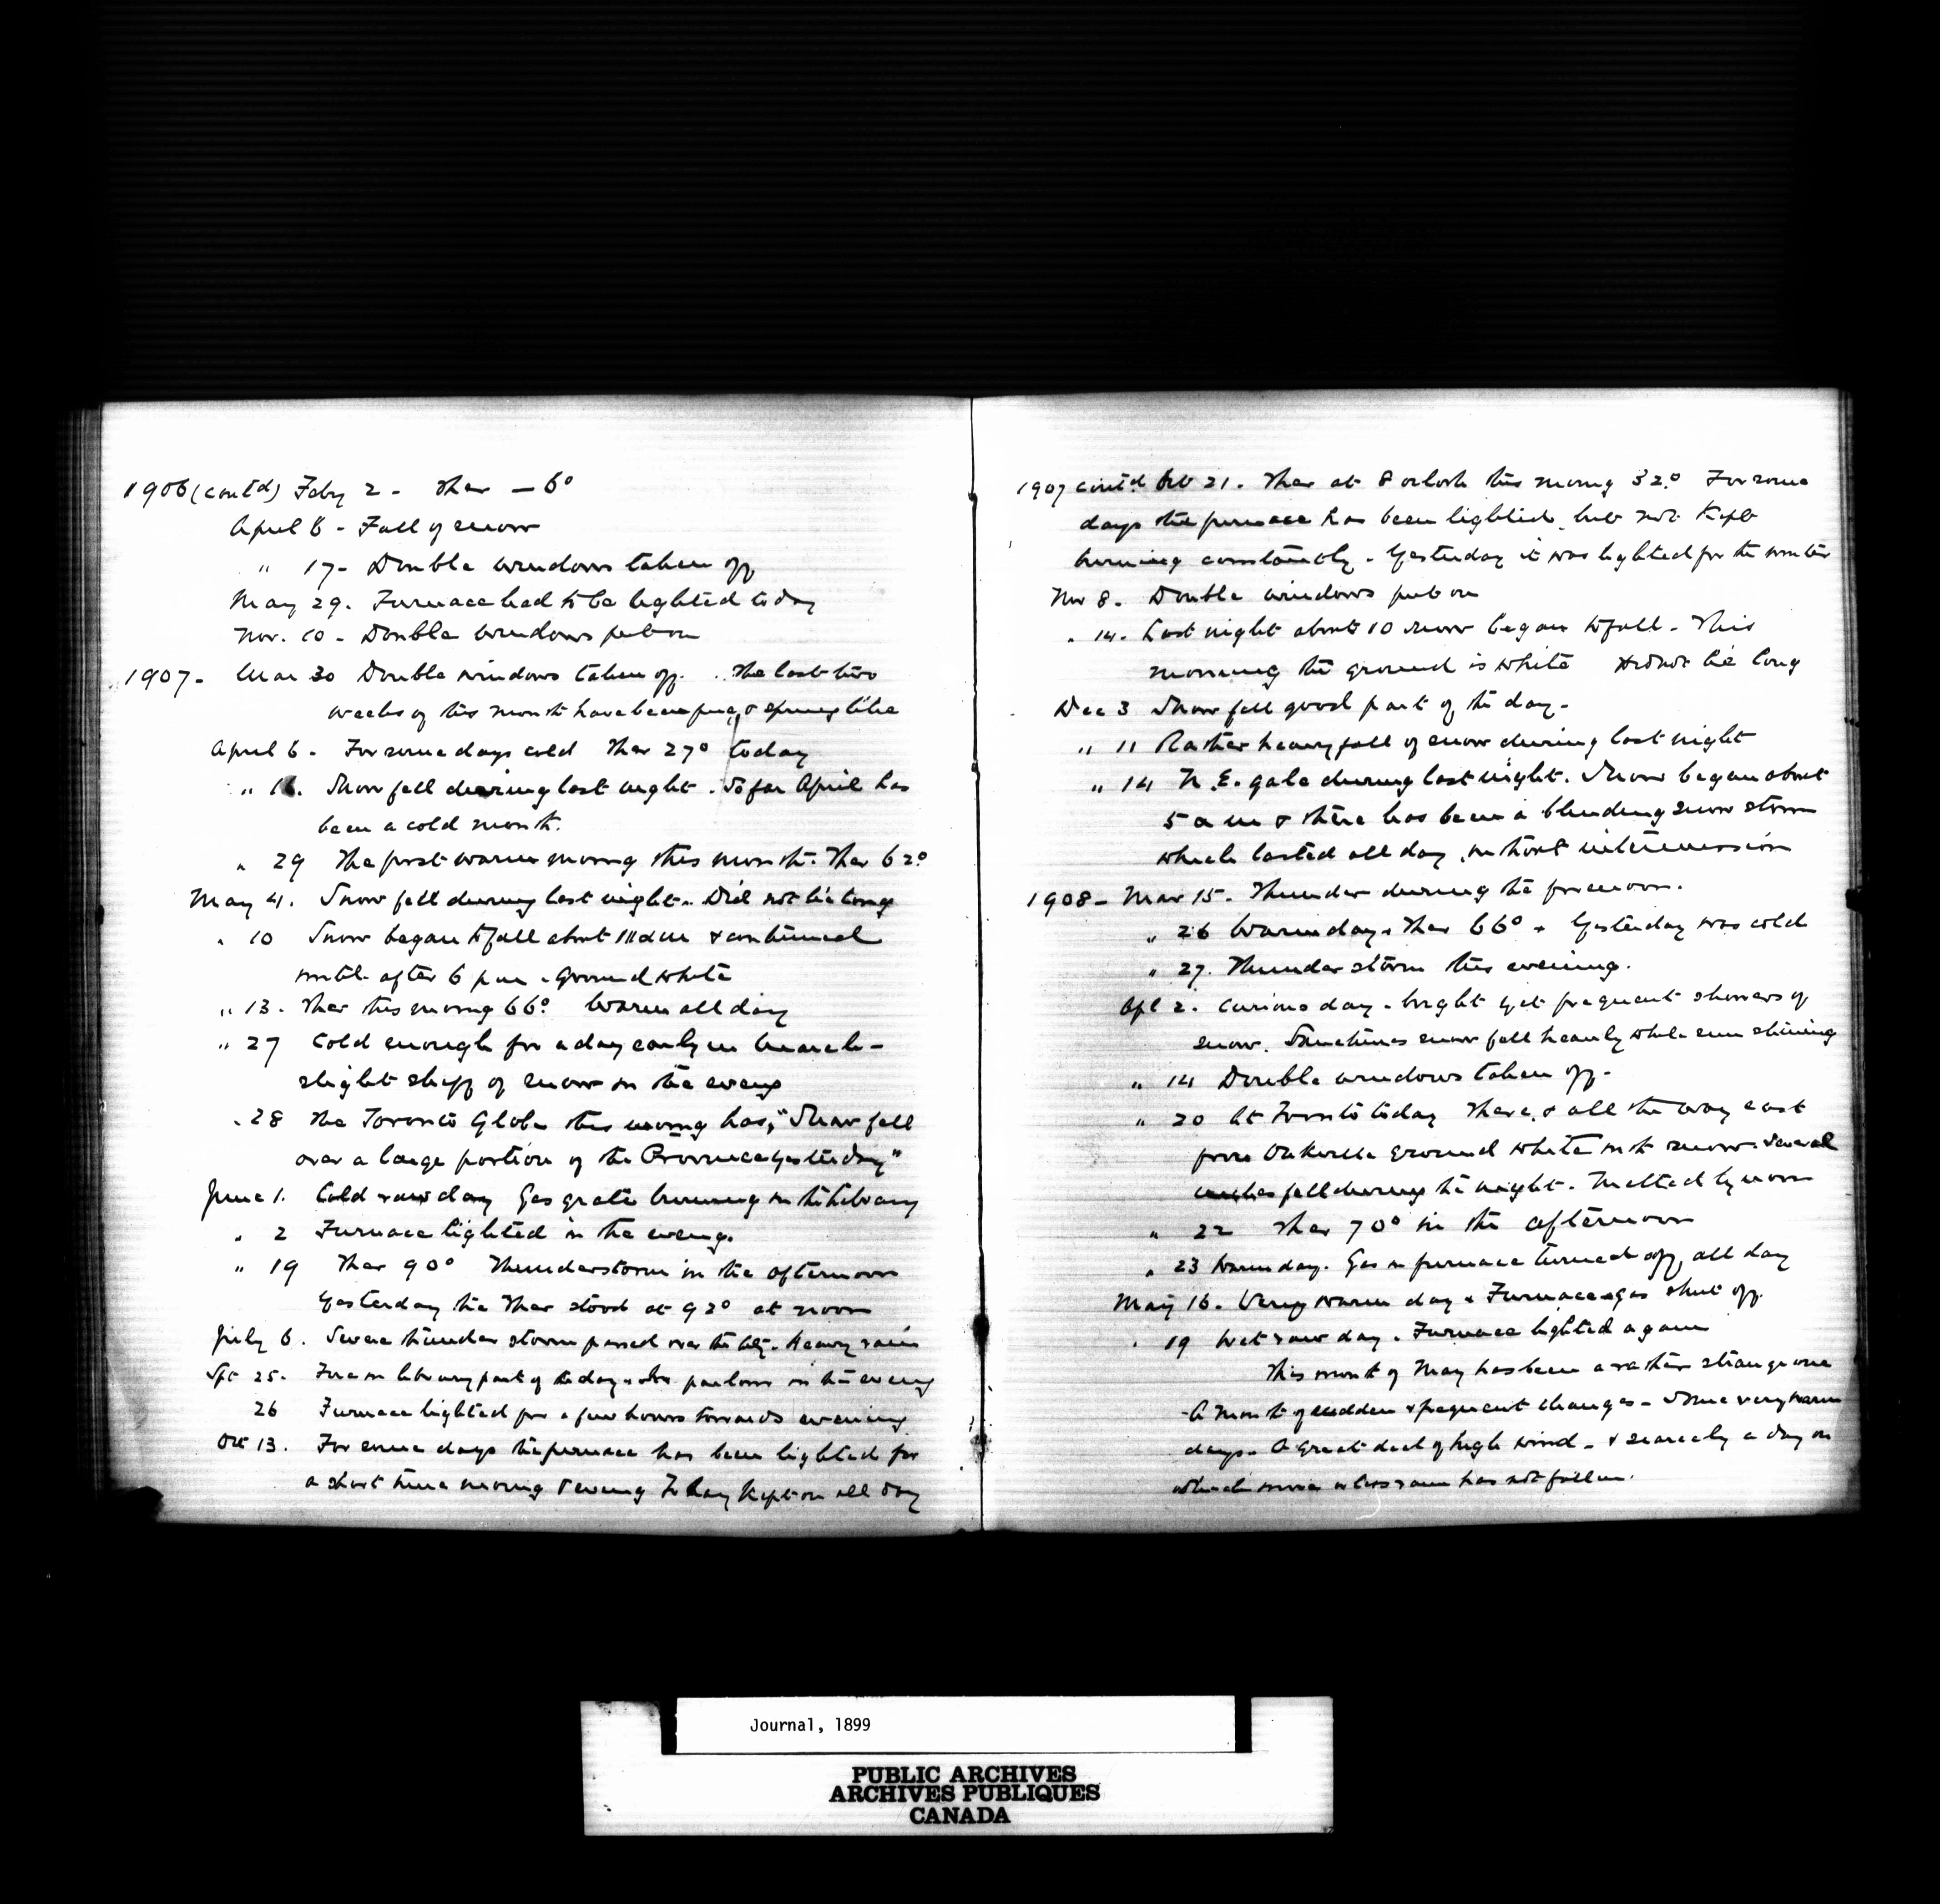 1906 (contd) Feby 2 - Ther — 6°
April 6 - Fall of snow
" 17 - Double windows taken off
May 29. Furnace had to be lighted today
Nov. 10 - Double windows put on
1907 - Mar 30 Double windows taken off. The last two
weeks of this month have been fine & spring like
April 6 - For some days cold Ther 27° today
" 16. Snow fell during last night. So far April has
been a cold month.
" 29 The first warm morng this month. Ther 62°
May 4. Snow fell during last night. Did not lie long
" 10 Snow began to fall about 11 a m & continued
until after 6 p m. Ground white
" 13. Ther this morng 66° Warm all day
" 27 Cold enough for a day early in March -
slight skiff of snow in the eveng
" 28 The Toronto Globe this morng has, "Snow fell
over a large portion of the Province yesterday"
June 1. Cold raw day Gas grate burning in the library
" 2 Furnace lighted in the eveng.
" 19 Ther 90° Thunderstorm in the afternoon
Yesterday the Ther stood at 92° at noon
July 6. Severe thunder storm passed over the city. Heavy rain
Spt 25. Fire in library part of the day & in parlour in the eveng
26 Furnace lighted for a few hours towards evening
Oct 13. For some days the furnace has been lighted for
a short time morng & eveng To day kept on all day
1907 contd Oct 21. Ther at 8 oclock this morng 32° For some
days the furnace has been lighted, but not kept
burning constantly. Yesterday it was lighted for the winter
Nov 8. Double windows put on
" 14. Last night about 10 snow began to fall. This
morning the ground is white Did not lie long
Dec 3 Snow fell good part of the day.
" 11 Rather heavy fall of snow during last night
" 14 N.E. gale during last night. Snow began about
5 a m & there has been a blinding snow storm
which lasted all day, without intermission
1908 - Mar 15. Thunder during the forenoon.
" 26 Warm day. Ther 66°. Yesterday was cold
" 27. Thunder storm this evening.
Apl 2. Curious day. bright yet frequent showers of
snow. Sometimes snow fell heavily while sun shining
" 14 Double windows taken off.
" 20 At Toronto today There, & all the way east
from Oakville ground white with snow. Several
inches fell during the night. Melted by noon
" 22 Ther 70° in the afternoon
" 23 Warm day. Gas in furnace turned off all day
May 16. Very warm day. Furnace gas shut off.
" 19 Wet raw day. Furnace lighted again
This month of May has been a rather strange one
- A month of sudden & frequent changes - Some very warm
days. A great deal of high wind - & scarcely a day on
which more or less rain has not fallen.
Journal, 1899
PUBLIC ARCHIVES
ARCHIVES PUBLIQUES
CANADA